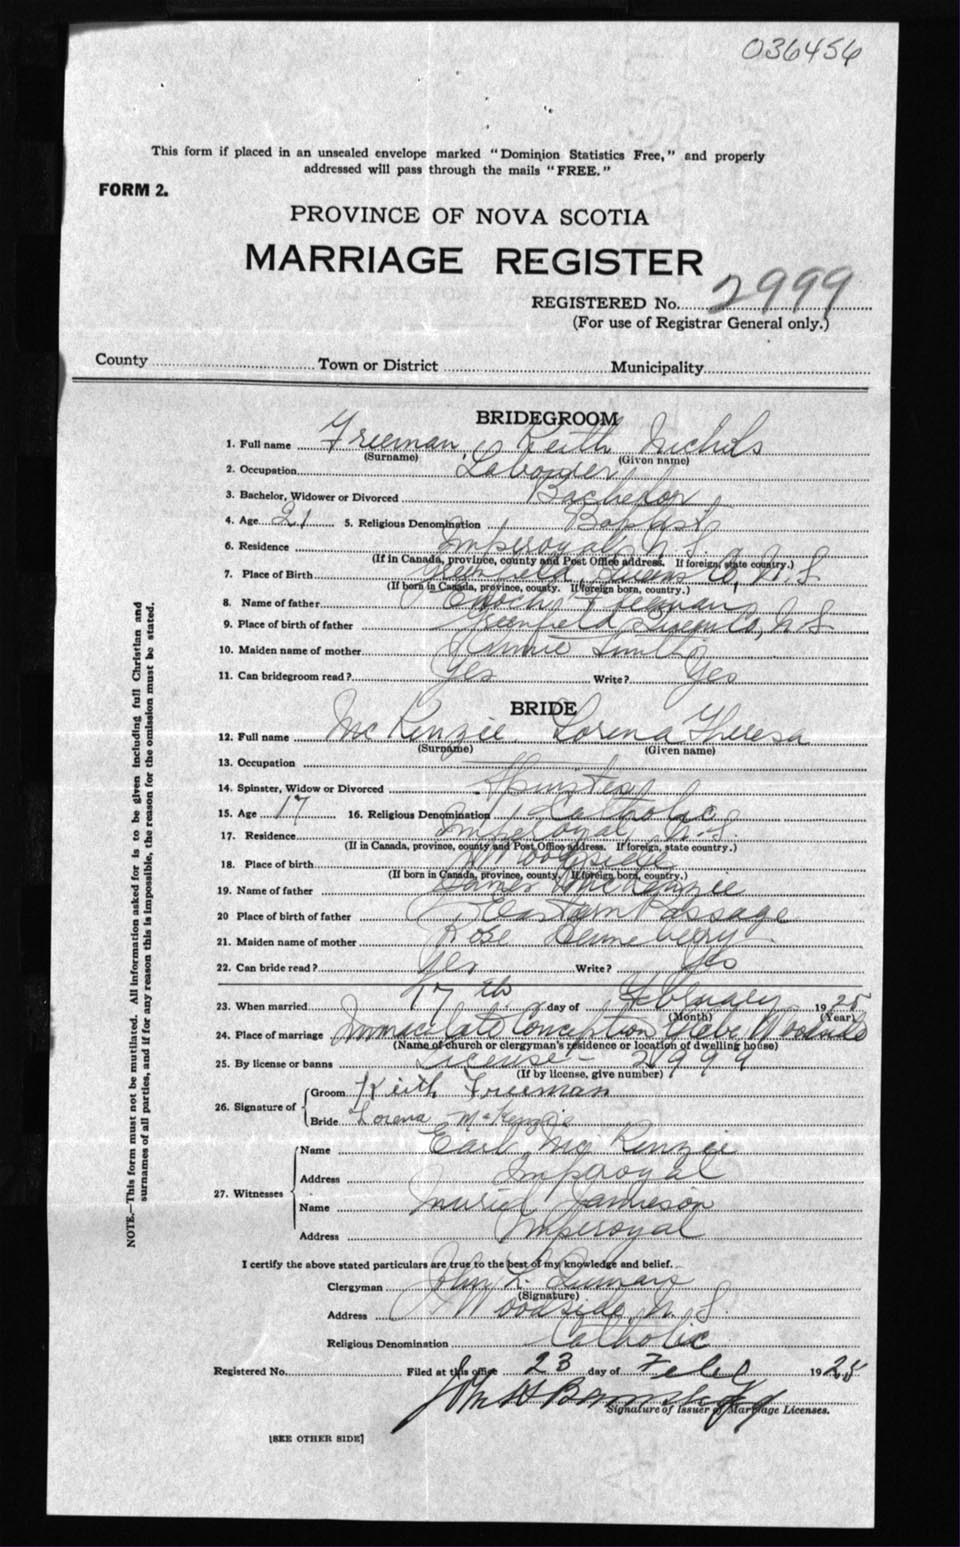 036456
This form if placed in an unsealed envelope marked "Dominion Statistics Free," and properly
addressed will pass through the mails "FREE."
FORM 2.
PROVINCE OF NOVA SCOTIA
MARRIAGE REGISTER
REGISTERED No. 2999
(For use of Registrar General only.)
County Town or District Municipality
BRIDEGROOM
1. Full name Freeman, Keith Nichols
(Surname) (Given name)
2. Occupation Labourer
3. Bachelor, Widower or Divorced Bachelor
4. Age 21 5. Religious Denomination Baptist
6. Residence Imperoyal, N. S.
(If in Canada, province, county and Post Office address. If foreign, state country.)
7. Place of Birth Greenfield, Queens Co, N. S.
(If born in Canada, province, county. If foreign born, country.)
8. Name of father Enoch Freeman
9. Place of birth of father Greenfield Queens Co, N. S.
10. Maiden name of mother Smith
11. Can bridegroom read? Yes Write? Yes
BRIDE
12. Full name McKenzie, Lorena Theresa
(Surname) (Given name)
13. Occupation
14. Spinster, Widow or Divorced Spinster
15. Age 17 16. Religious Denomination Catholic
17. Residence Imperoyal, N. S.
(If in Canada, province, county and Post Office address. If foreign, state country.)
18. Place of birth Woodside
(If born in Canada, province, county. If foreign born, country.)
19. Name of father James McKenzie
20 Place of birth of father Eastern Passage
21. Maiden name of mother Rose
22. Can bride read? Yes Write? Yes
23. When married 17th day of February 1925
(Month) (Year)
24. Place of marriage Immaculate Conception Glebe, Woodside
(Name of church or clergyman's residence or location of dwelling house)
25. By license or banns License - 2999
(If by license, give number)
26. Signature of Groom Keith Freeman
Bride Lorena McKenzie
27. Witnesses Name Earl McKenzie
Address Imperoyal
Name Muriel Jamieson
Address Imperoyal
I certify the above stated particulars are true to the best of my knowledge and belief.
Clergyman John L.
(Signature)
Address Woodside, N. S.
Religious Denomination Catholic
Registered No. Filed at this office 23 day of Feb 1925
John
Signature of Issuer of Marriage Licenses.
[SEE OTHER SIDE]
NOTE.—This form must not be mutilated. All information asked for is to be given including full Christian and
surnames of all parties, and if for any reason this is impossible, the reason for the omission must be stated.